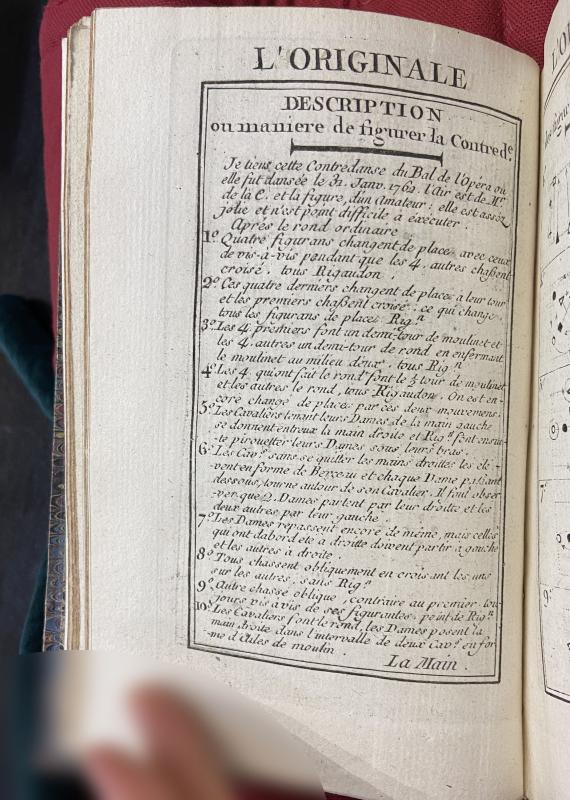 L'ORIGINALE
DESCRIPTION
ou maniere de figurer la Contred.e
Je tiens cette Contredanse du Bal de l'Opéra ou
elle fut dansée le 31. Janv. 1762. l'Air est de M.r
de la C. et la figure, d'un Amateur : elle est assez
jolie et n'est point difficile à éxécuter.
Aprés le rond ordinaire
1.º Quatre figurans changent de place avec ceux
de vis-à-vis pendant que les 4. autres chassent
croisé, tous Rigaudon.
2.º Ces quatre derniers changent de place a leur tour
et les premiers chassent croisé : ce qui change
tous les figurans de place. Rig.n
3.º Les 4. premiers font un demi-tour de moulinet et
les 4. autres un demi-tour de rond en enfermant
le moulinet au milieu d'eux, tous Rig.n
4.º Les 4. qui ont fait le rond font le ½ tour de moulinet
et les autres le rond, tous Rigaudon. On est en-
core changé de place par ces deux mouvemens.
5.º Les Cavaliers tenant leurs Dames de la main gauche
se donnent entr'eux la main droite et Rig.n font ensui-
-te pirouetter leurs Dames sous leurs bras.
6.º Les Cav.rs sans se quitter les mains droittes les éle-
-vent en forme de Berceau et chaque Dame passant
dessous, tourne autour de son Cavalier. Il faut obser
-ver que 2. Dames partent par leur droite et les
deux autres par leur gauche.
7.º Les Dames repassent encore de même, mais celles
qui ont d'abord été à droitte doivent partir à gauche
et les autres à droite.
8.º Tous chassent obliquement en croisant les uns
sur les autres, sans Rig.n
9.º Autre chassé oblique, contraire au premier, tou-
jours vis à vis de ses figurantes, point de Rig.n
10.º Les Cavaliers font le rond, les Dames posent la
main droite dans l'intervalle de deux Cav.rs en for
-me d'Ailes de moulin.
La Main.